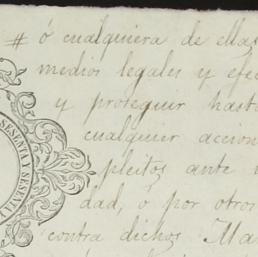 # ó cualquiera de ellas
medios legales y efec
y proteguir hasta
cualquier accion
pleitos ante
dad, ó por otros
contra dichos Ma
SESENTA Y SESENTA Y